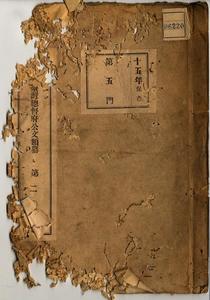 十五年保存
第五門
灣總督府公文類纂 第二